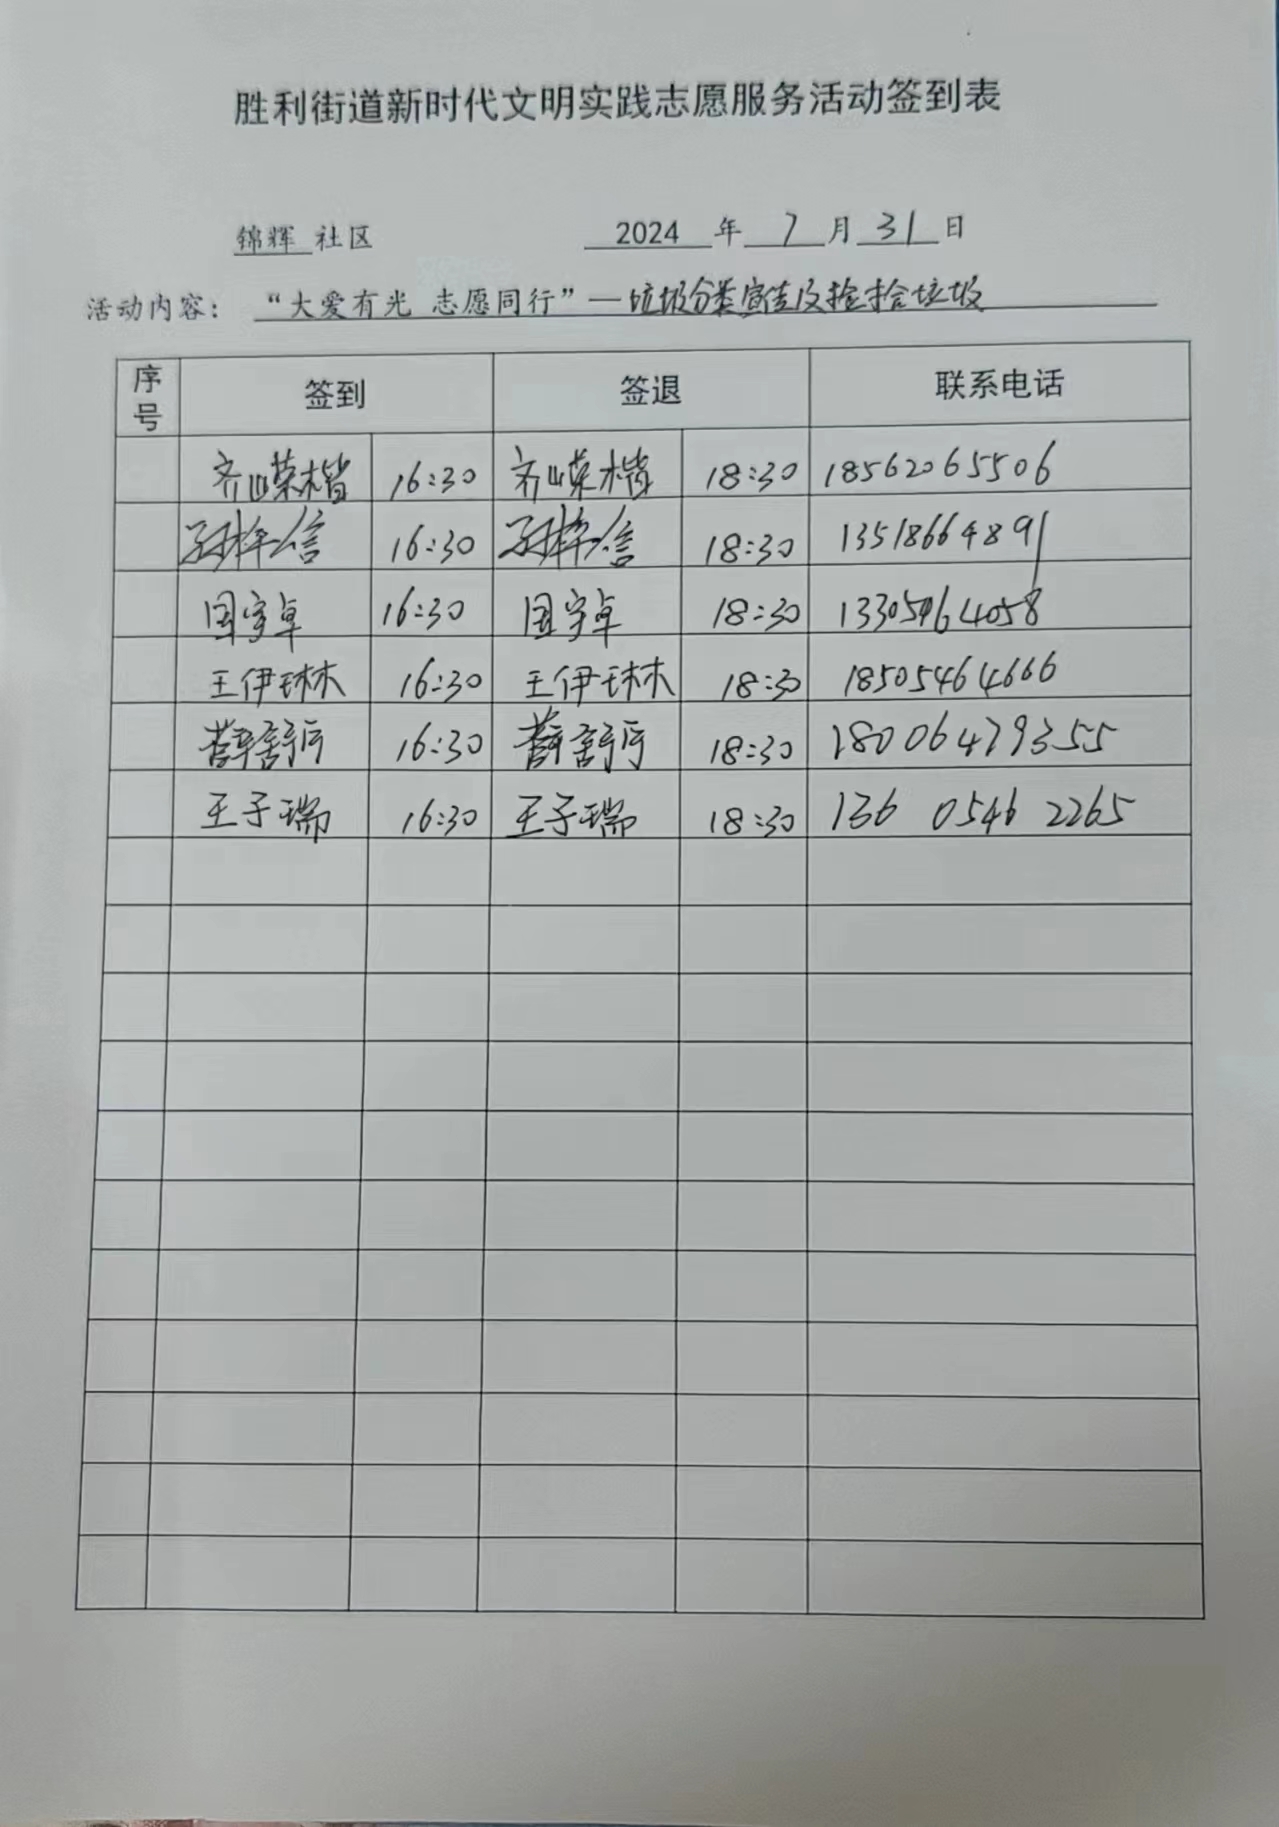 胜利街道新时代文明实践志愿服务活动签到表
锦辉 社区 2024 年 7 月 31 日
活动内容： “大爱有光 志愿同行”—垃圾分类宣传及捡拾垃圾
序号 签到 签退 联系电话
齐嵘楷 16:30 齐嵘楷 18:30 18562065506
孙梓信 16:30 孙梓信 18:30 13518664891
国宇卓 16:30 国宇卓 18:30 13305464058
王伊琳 16:30 王伊琳 18:30 18505464666
薛舒 16:30 薛舒 18:30 18006479355
王子瑞 16:30 王子瑞 18:30 136 0546 2265